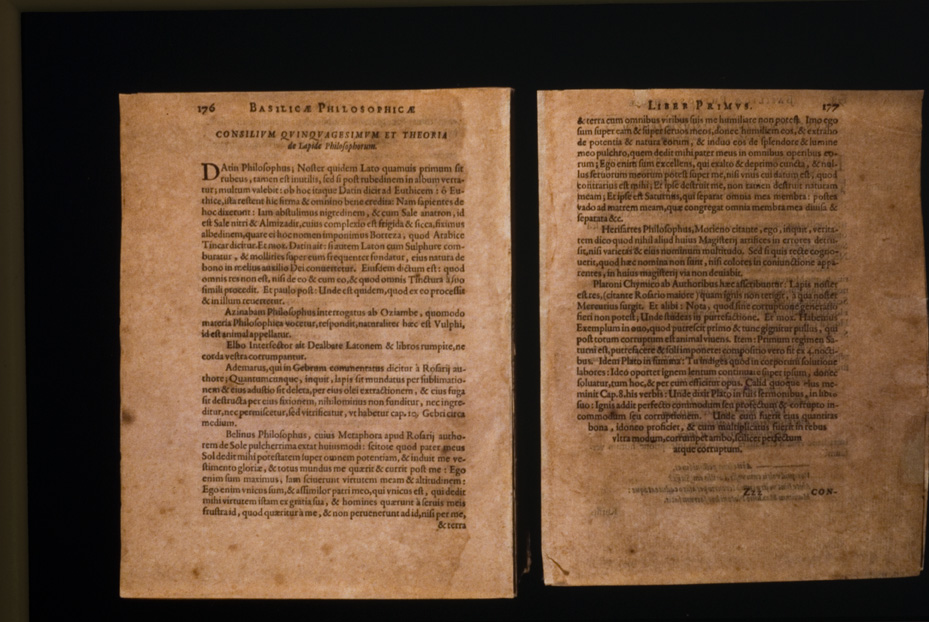 176 BASILICÆ PHILOSOPHICÆ
CONSILIVM QVINQVAGESIMVM ET THEORIA
de Lapide Philosophorum.
DAtin Philosophus; Noster quidem Lato quamuis primum sit
rubeus, tamen est inutilis, sed si post rubedinem in album verta-
tur; multum valebit: ob hoc itaque Datin dicit ad Euthicem: ô Eu-
thice, ista restent hic firma & omnino bene credita: Nam sapientes de
hoc dixerunt: Iam abstulimus nigredinem, & cum Sale anatron, id
est Sale nitri & Almizadir, cuius complexio est frigida & sicca, fiximus
albedinem, quare ei hoc nomen imponimus Borreza, quod Arabice
Tincar dicitur. Et mox. Datin ait: si autem Laton cum Sulphure com-
buratur, & mollities super eum frequenter fundatur, eius natura de
bono in melius auxilio Dei conuertetur. Eiusdem dictum est: quod
omnis rex non est, nisi de eo & cum eo, & quod omnis Tinctura à suo
simili procedit. Et paulo post: Unde est quidem, quod ex eo processit
& in illum reuertetur.
Azinabam Philosophus interrogatus ab Oziambe, quomodo
materia Philosophica vocetur, respondit, naturaliter hæc est Vulphi,
id est animal appellatur.
Elbo Interfector ait Dealbate Latonem & libros rumpite, ne
corda vestra corrumpantur.
Ademarus, qui in Gebrum commentatus dicitur à Rosarij au-
thore; Quantumcunque, inquit, lapis sit mundatus per sublimatio-
nem & eius adustio sit deleta, per eius olei extractionem, & eius fuga
sit destructa per eius fixionem, nihilominus non funditur, nec ingre-
ditur, nec permiscetur, sed vitrificatur, vt habetur cap. 19. Gebri circa
medium.
Belinus Philosophus, cuius Metaphora apud Rosarij autho-
rem de Sole pulcherrima extat huiusmodi: scitote quod pater meus
Sol dedit mihi potestatem super omnem potentiam, & induit me ve-
stimento gloriæ, & totus mundus me quærit & currit post me: Ego
enim sum maximus; Iam sciuerunt virtutem meam & altitudinem:
Ego enim vnicus sum, & assimilor patri meo, qui vnicus est, qui dedit
mihi virtutem istam ex gratia sua, & homines quærunt à seruis meis
frustra id, quod quæritur à me, & non peruenerunt ad id, nisi per me,
& terra
LIBER PRIMVS. 177
& terra cum omnibus viribus suis me humiliare non potest. Imo ego
sum super eam & super seruos meos, donec humiliem eos, & extraho
de potentia & natura eorum, & induo eos de splendore & lumine
meo pulchro, quem dedit mihi pater meus in omnibus operibus eo-
rum; Ego enim sum excellens, qui exalto & deprimo cuncta, & nul-
lus seruorum meorum potest super me, nisi vnus cui datum est, quod
contrarius est mihi; Et ipse destruit me, non tamen destruit naturam
meam; Et ipse est Saturnus, qui separat omnia mea membra: postea
vado ad matrem meam, quæ congregat omnia membra mea diuisa &
separata &c.
Herisartes Philosophus, Morieno citante, ego, inquit, verita-
tem dico quod nihil aliud huius Magisterij artifices in errores detru-
sit, nisi varietas & eius nominum multitudo. Sed si quis recte cogno-
uerit, quod hæc nomina non sunt, nisi colores in coniunctione appa-
rentes, in huius magisterij via non deuiabit.
Platoni Chymico ab Authoribus hæc ascribuntur: Lapis noster
est res, (citante Rosario maiore) quam ignis non tetigit, à qua noster
Mercurius surgit. Et alibi: Nota, quod sine corruptione generatio
fieri non potest; Unde studeas in putrefactione. Et mox: Habemus
Exemplum in ouo, quod putrescit primo & tunc gignitur pullus, qui
post totum corruptum est animal viuens. Item: Primum regimen Sa-
turni est, putrefacere & soli imponere compositio vero fit ex 4. nocti-
bus. Idem Plato in summa: Tu indiges quod in corporum solutione
labores: Ideo oportet ignem lentum continuare super ipsum, donec
soluatur, tum hoc, & per eum efficitur opus. Calid quoque eius me-
minit Cap. 8. his verbis: Unde dixit Plato in suis sermonibus, in libro
suo: Ignis addit perfecto optimodum seu profectum & corrupto in-
commodum seu corruptionem. Unde cum fuerit eius quantitas
bona, idoneo proficiet, & cum multiplicatus fuerit in rebus
vltra modum, corrumpet ambo, scilicet perfectum
atque corruptum.
Z CON-